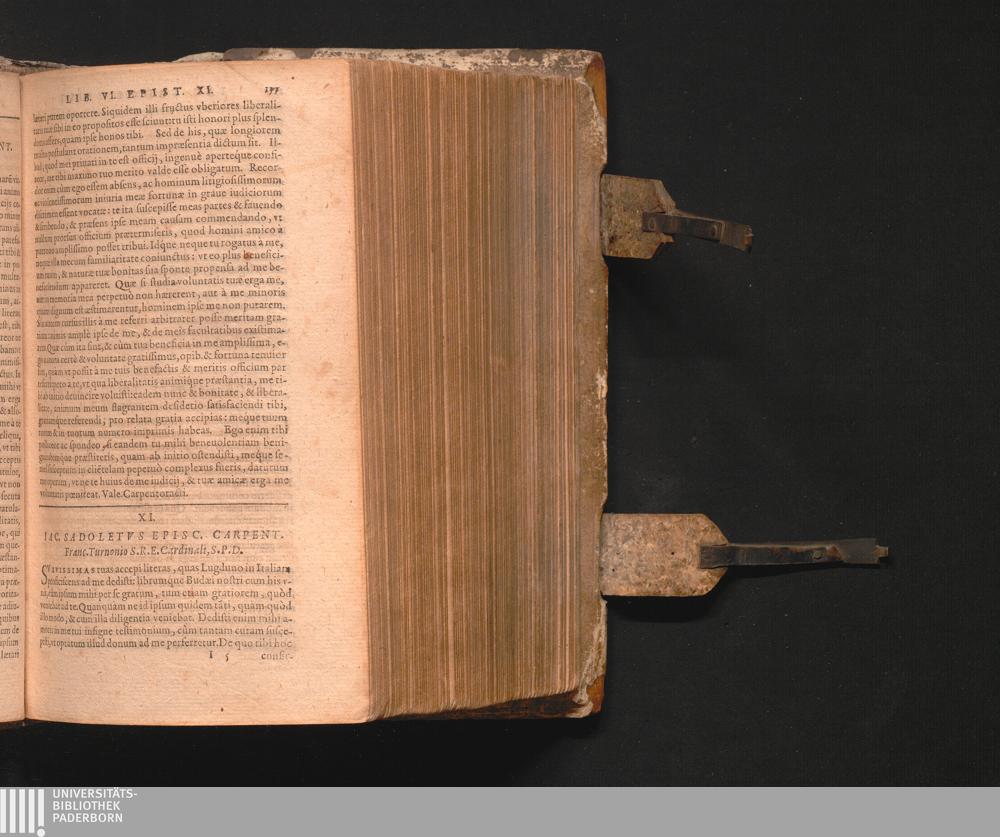 LIB. VI. EPIST. XI. 177
putem oportere. Siquidem illi fructus vberiores liberali-
tatis tuæ sibi in eo propositos esse sciunt: tu isti honori plus splen-
doris affers, quam ipse honos tibi. Sed de his, quæ longiorem
multo postulant orationem, tantum impræsentia dictum sit. Il-
lud, quod mei priuati in te est officij, ingenuè aperteque confi-
teor, me tibi maximo tuo merito valde esse obligatum. Recor-
dor enim cùm ego essem absens, ac hominum litigiosissimorum
ac violentissimorum iniuria meæ fortunæ in graue iudiciorum
discrimen essent vocatæ: te ita suscepisse meas partes & fauendo
& scribendo, & præsens ipse meam causam commendando, vt
nullum prorsus officium prætermiseris, quod homini amico à
patrono amplissimo posset tribui. Idque neque tu rogatus à me,
neque vlla mecum familiaritate coniunctus: vt eo plus benefici-
um tuum, & naturæ tuæ bonitas sua sponte propensa ad me be-
neficiendum appareret. Quæ si studia voluntatis tuæ erga me,
aut in memoria mea perpetuò non hærerent, aut à me minoris
quàm dignum est æstimarentur, hominem ipse me non putarem.
Sin autem rursus illis à me referri arbitrarer posse meritam gra-
tiam: nimis amplè ipse de me, & de meis facultatibus existima-
rem. Quæ cùm ita sint, & cùm tua beneficia in me amplissima, e-
go animo certè & voluntate gratissimus, opib. & fortuna tenuior
sim, quàm vt possit à me tuis benefactis & meritis officium par
referri: peto a te, vt qua liberalitatis animique præstantia, me ti-
bi ab initio deuincire voluisti: eadem nunc & bonitate, & libera-
litate, animum meum flagrantem desiderio satisfaciendi tibi,
gratiamque referendi, pro relata gratia accipias: meque tuum
putes & in tuorum numero inprimis habeas. Ego enim tibi
polliceor ac spondeo, si eandem tu mihi beneuolentiam beni-
gnitatemque præstiteris, quam ab initio ostendisti, meque se-
mel susceptum in cliẽtelam pepetuò complexus fueris, daturum
me operam, vt ne te huius de me iudicij, & tuæ amicæ erga me
voluntatis pœniteat. Vale. Carpentoracti.
XI.
IAC. SADOLETVS EPISC. CARPENT.
Franc. Turnonio S.R.E. Cardinali, S.P.D.
SVAVISSIMAS tuas accepi literas, quas Lugduno in Italiam
proficiscens ad me dedisti: librumque Budæi nostri cum his v-
nà, cùm ipsum mihi per se gratum, tum etiam gratiorem, quòd
veniebat ad te. Quanquam ne id ipsum quidem tãti, quam quòd
illo modo, & cum illa diligentia veniebat. Dedisti enim mihi a-
moris in me tui insigne testimonium, cùm tantam curam susce-
pisti, vt optatum illud donum ad me perferretur. De quo tibi hoc
I 5 confir-
UNIVERSITÄTS-
BIBLIOTHEK
PADERBORN